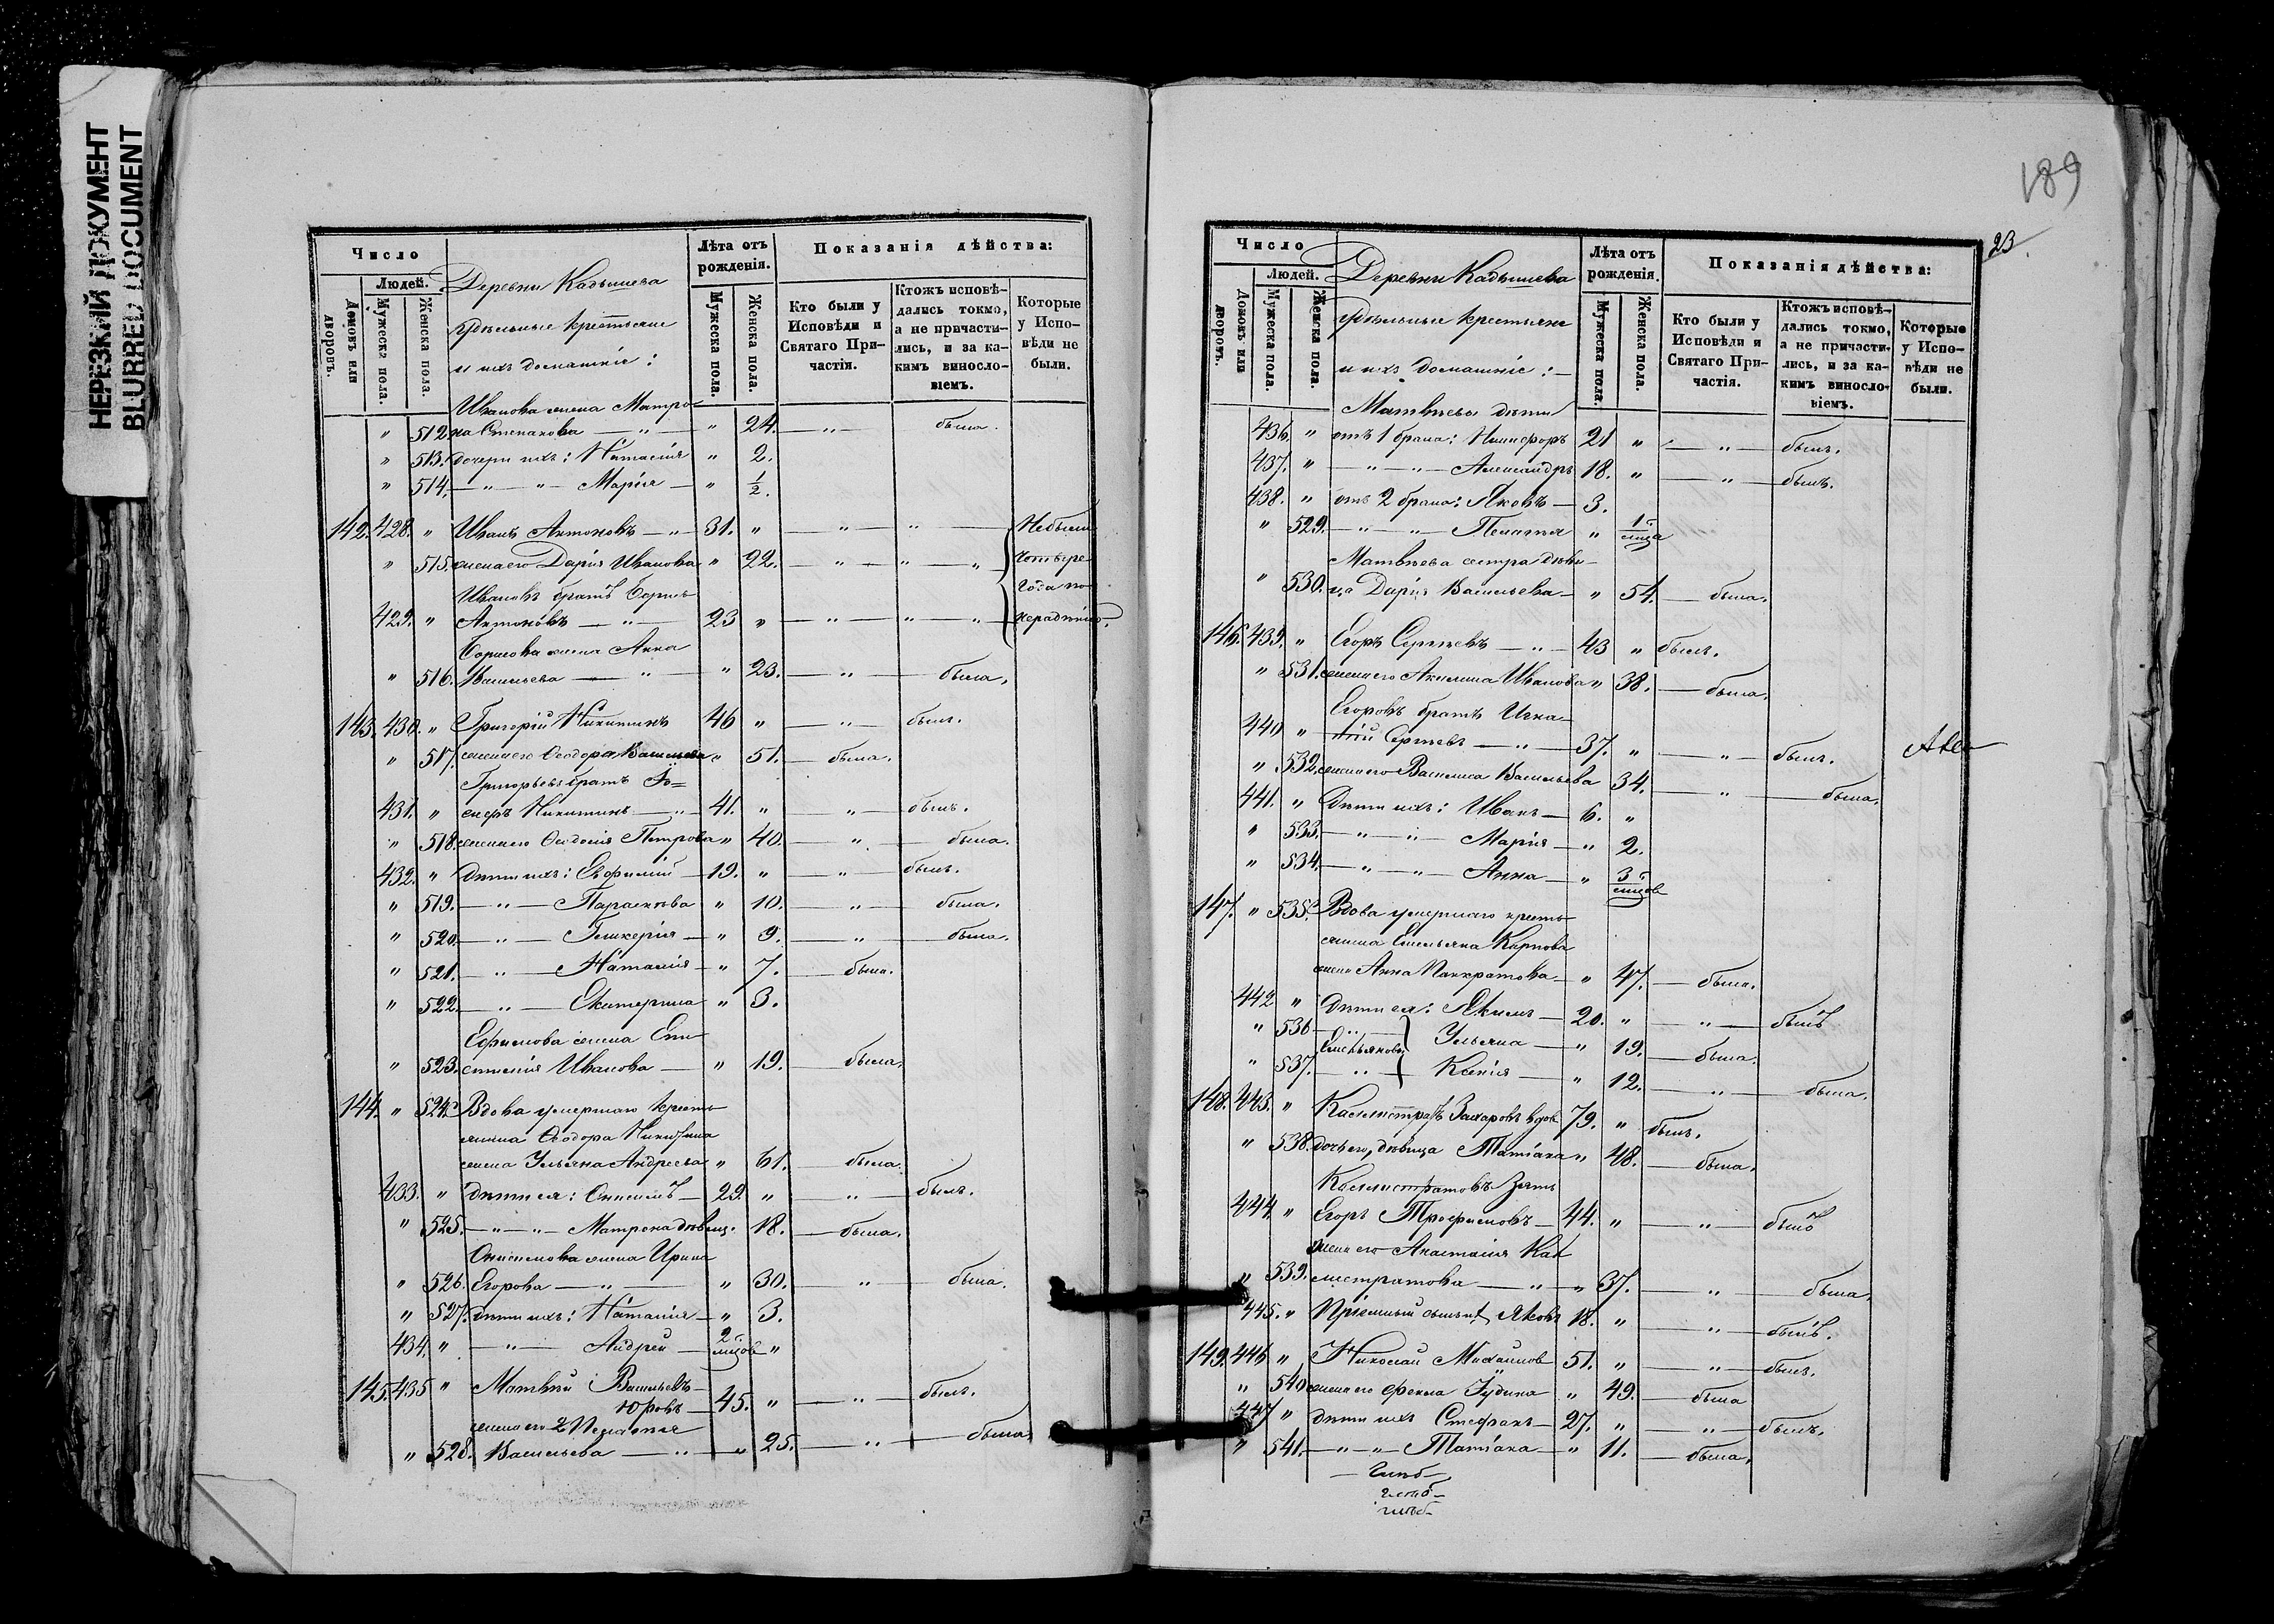 НЕРЕЗКИЙ ДОКУМЕНТ
BLURRED DOCUMENT
Число
Людей.
Домовъ или дворовъ.
Мужеска пола.
Женска пола.
Деревни Кадышева
удѣльные крестьяне
и ихъ домашніе:
Лѣта отъ рожденія.
Мужеска пола.
Женска пола.
Показанія дѣйства:
Кто были у Исповѣди и Святаго Причастія.
Ктожъ исповѣдались токмо, а не причастились, и за какимъ винословіемъ.
Которые у Исповѣди не были.
Иванова жена Матро-
" 512. на Степанова — " — " 24. — " — была.
" 513. дочери ихъ: Наталія " 2.
" 514. — " — " — Марія — " ½.
142. 428. " Иванъ Антоновъ — " — 31. " — " — " — Небыли
" 515. жена его Дарія Иванова " 22. — " — " — " четыре
Ивановъ братъ Борисъ года по
429. " Антоновъ — " — 23 " — " — " — " нерадѣнію.
Борисова жена Анна
" 516. Васильева — " — " 23. — " — была.
143. 430. " Григорій Никитинъ 46 " — " — былъ.
" 517. жена его Ѳеодора Васильева " 51. — была.
Григорьевъ братъ Іо=
431. " сифъ Никитинъ — " — 41. " — " — былъ.
" 518. жена его Ѳеодосія Петрова " 40. — " — была.
432. " дѣти ихъ: Евфимій — 19. " — " — былъ.
" 519. — " — Параскева " 10. — " — была.
" 520. — " — Гликерія — " 9. — " — была.
" 521. — " — Наталія — " 7. — была.
" 522. — " — Екатерина " 3.
Ефимова жена Епи-
" 523. стимія Иванова — " 19. — была.
144. " 524. Вдова умершаго кресть-
янина Ѳеодора Никитина
жена Ульяна Андреева " 61. — была.
433. " дѣти ея: Онисимъ — 29. " — " — былъ.
" 525. — " — " — Матрона дѣвиц. 18. — была.
Онисимова жена Ирина
" 526. Егорова — " — " 30. — " — была.
" 527. дѣти ихъ: Наталія — " 3.
434. " — " — Андрей — 2 мѣсяцов "
145. 435 " Матвѣй Васильевъ —
Юровъ — 45. " — " — былъ.
жена его 2 Пелагія
" 528. Васильева — " — " 25. — " — была
189
23.
Число
Людей.
Домовъ или дворовъ.
Мужеска пола.
Женска пола.
Деревни Кадышева
удѣльные крестьяне
и ихъ домашніе: —
Лѣта отъ рожденія.
Мужеска пола.
Женска пола.
Показанія дѣйства:
Кто были у Исповѣди и Святаго Причастія.
Ктожъ исповѣдались токмо, а не причастились, и за какимъ винословіемъ.
Которые у Исповѣди не были.
Матвѣевы дѣти
436. " отъ 1 брака: Никифоръ 21 " — " — былъ.
437. " — " — " — Александръ 18. " — " — былъ.
438. " отъ 2 брака: Яковъ — 3.
" 529. — " — " — Пелагія " 1
Матвѣева сестра дѣви-
" 530. ца Дарія Васильева — " 54. — была.
146. 439. " Егоръ Сергѣевъ — " — 43 " былъ.
" 531. жена его Акилина Иванова " 38. — была.
Егоровъ братъ Игна-
440 " тій Сергѣевъ — " — 37. " — " — былъ.
" 532. жена его Василиса Васильева 34. — " — была.
441. " Дѣти ихъ: Иванъ — 6. "
" 533. — " — " — Марія — " 2.
" 534. — " — " — Анна — " 3 мѣсяцов
147. " 535. Вдова умершаго кресть-
янина Емельяна Карпова
жена Анна Панкратова — " 47. — была.
442 " Дѣти ея: Якимъ — 20. " — " — былъ
" 536 — " — Ульяна — " 19. — была.
Емельяновы
" 537. — " — Ксенія — " 12. — " — была.
148. 443. " Каллистратъ Захаровъ вдов 79. " былъ.
" 538. дочь его, дѣвица Татіана " 48. — была.
Каллистратовъ зять
444. " Егоръ Трофимовъ — 44. " — " — былъ
жена его Анастасія Кал
" 539. листратова — " — " 37. — " — была.
445. " Пріемный сынъ Яковъ 18. " — " — былъ.
149. 446 " Николай Михайлов 51. " — " — былъ.
" 540 жена его Фекла Іудина " 49. — была
447 " дѣти ихъ Стефанъ — 27. " — " — былъ.
" 541. — " — " — Татіана — " 11. — была.